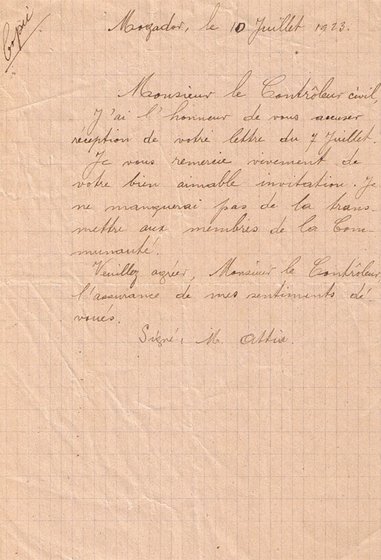 Copie
Mogador, le 10 Juillet 1923.
Monsieur le Contrôleur civil,
J'ai l'honneur de vous accuser
réception de votre lettre du 7 Juillet.
Je vous remercie vivement de
votre bien aimable invitation. Je
ne manquerai pas de la trans-
mettre aux membres de la Com-
munauté.
Veuillez agréer, Monsieur le Contrôleur
l'assurance de mes sentiments dé
voués.
Signé: M. Attia